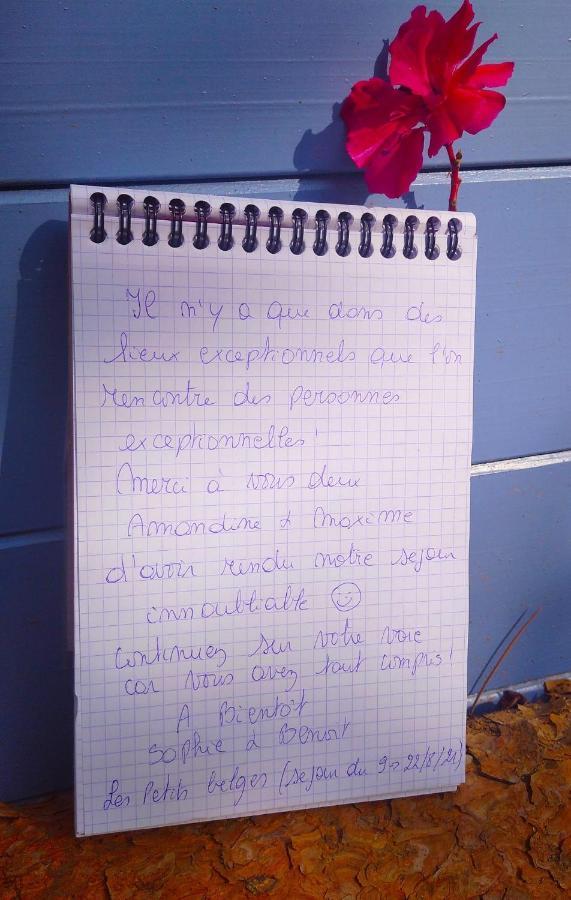 Il n'y a que dans des
lieux exceptionnels que l'on
rencontre des personnes
exceptionnelles!
Merci à vous deux
Amandine & Maxime
d'avoir rendu notre sejour
innoubliable ☺
Continuez sur votre voie
car vous avez tout compris!
A Bientôt
Sophie & Benoit
Les Petits belges (sejour du 9 → 22/8/21)